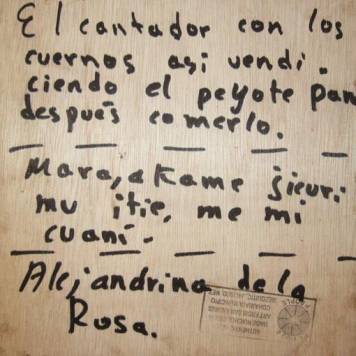 El cantador con los
cuernos asi vendi.
ciendo el peyote para
después comerlo.
Mara, akame jicuri.
mu itie, me mi
cuaní-
Alejandrina de la
Rosa.